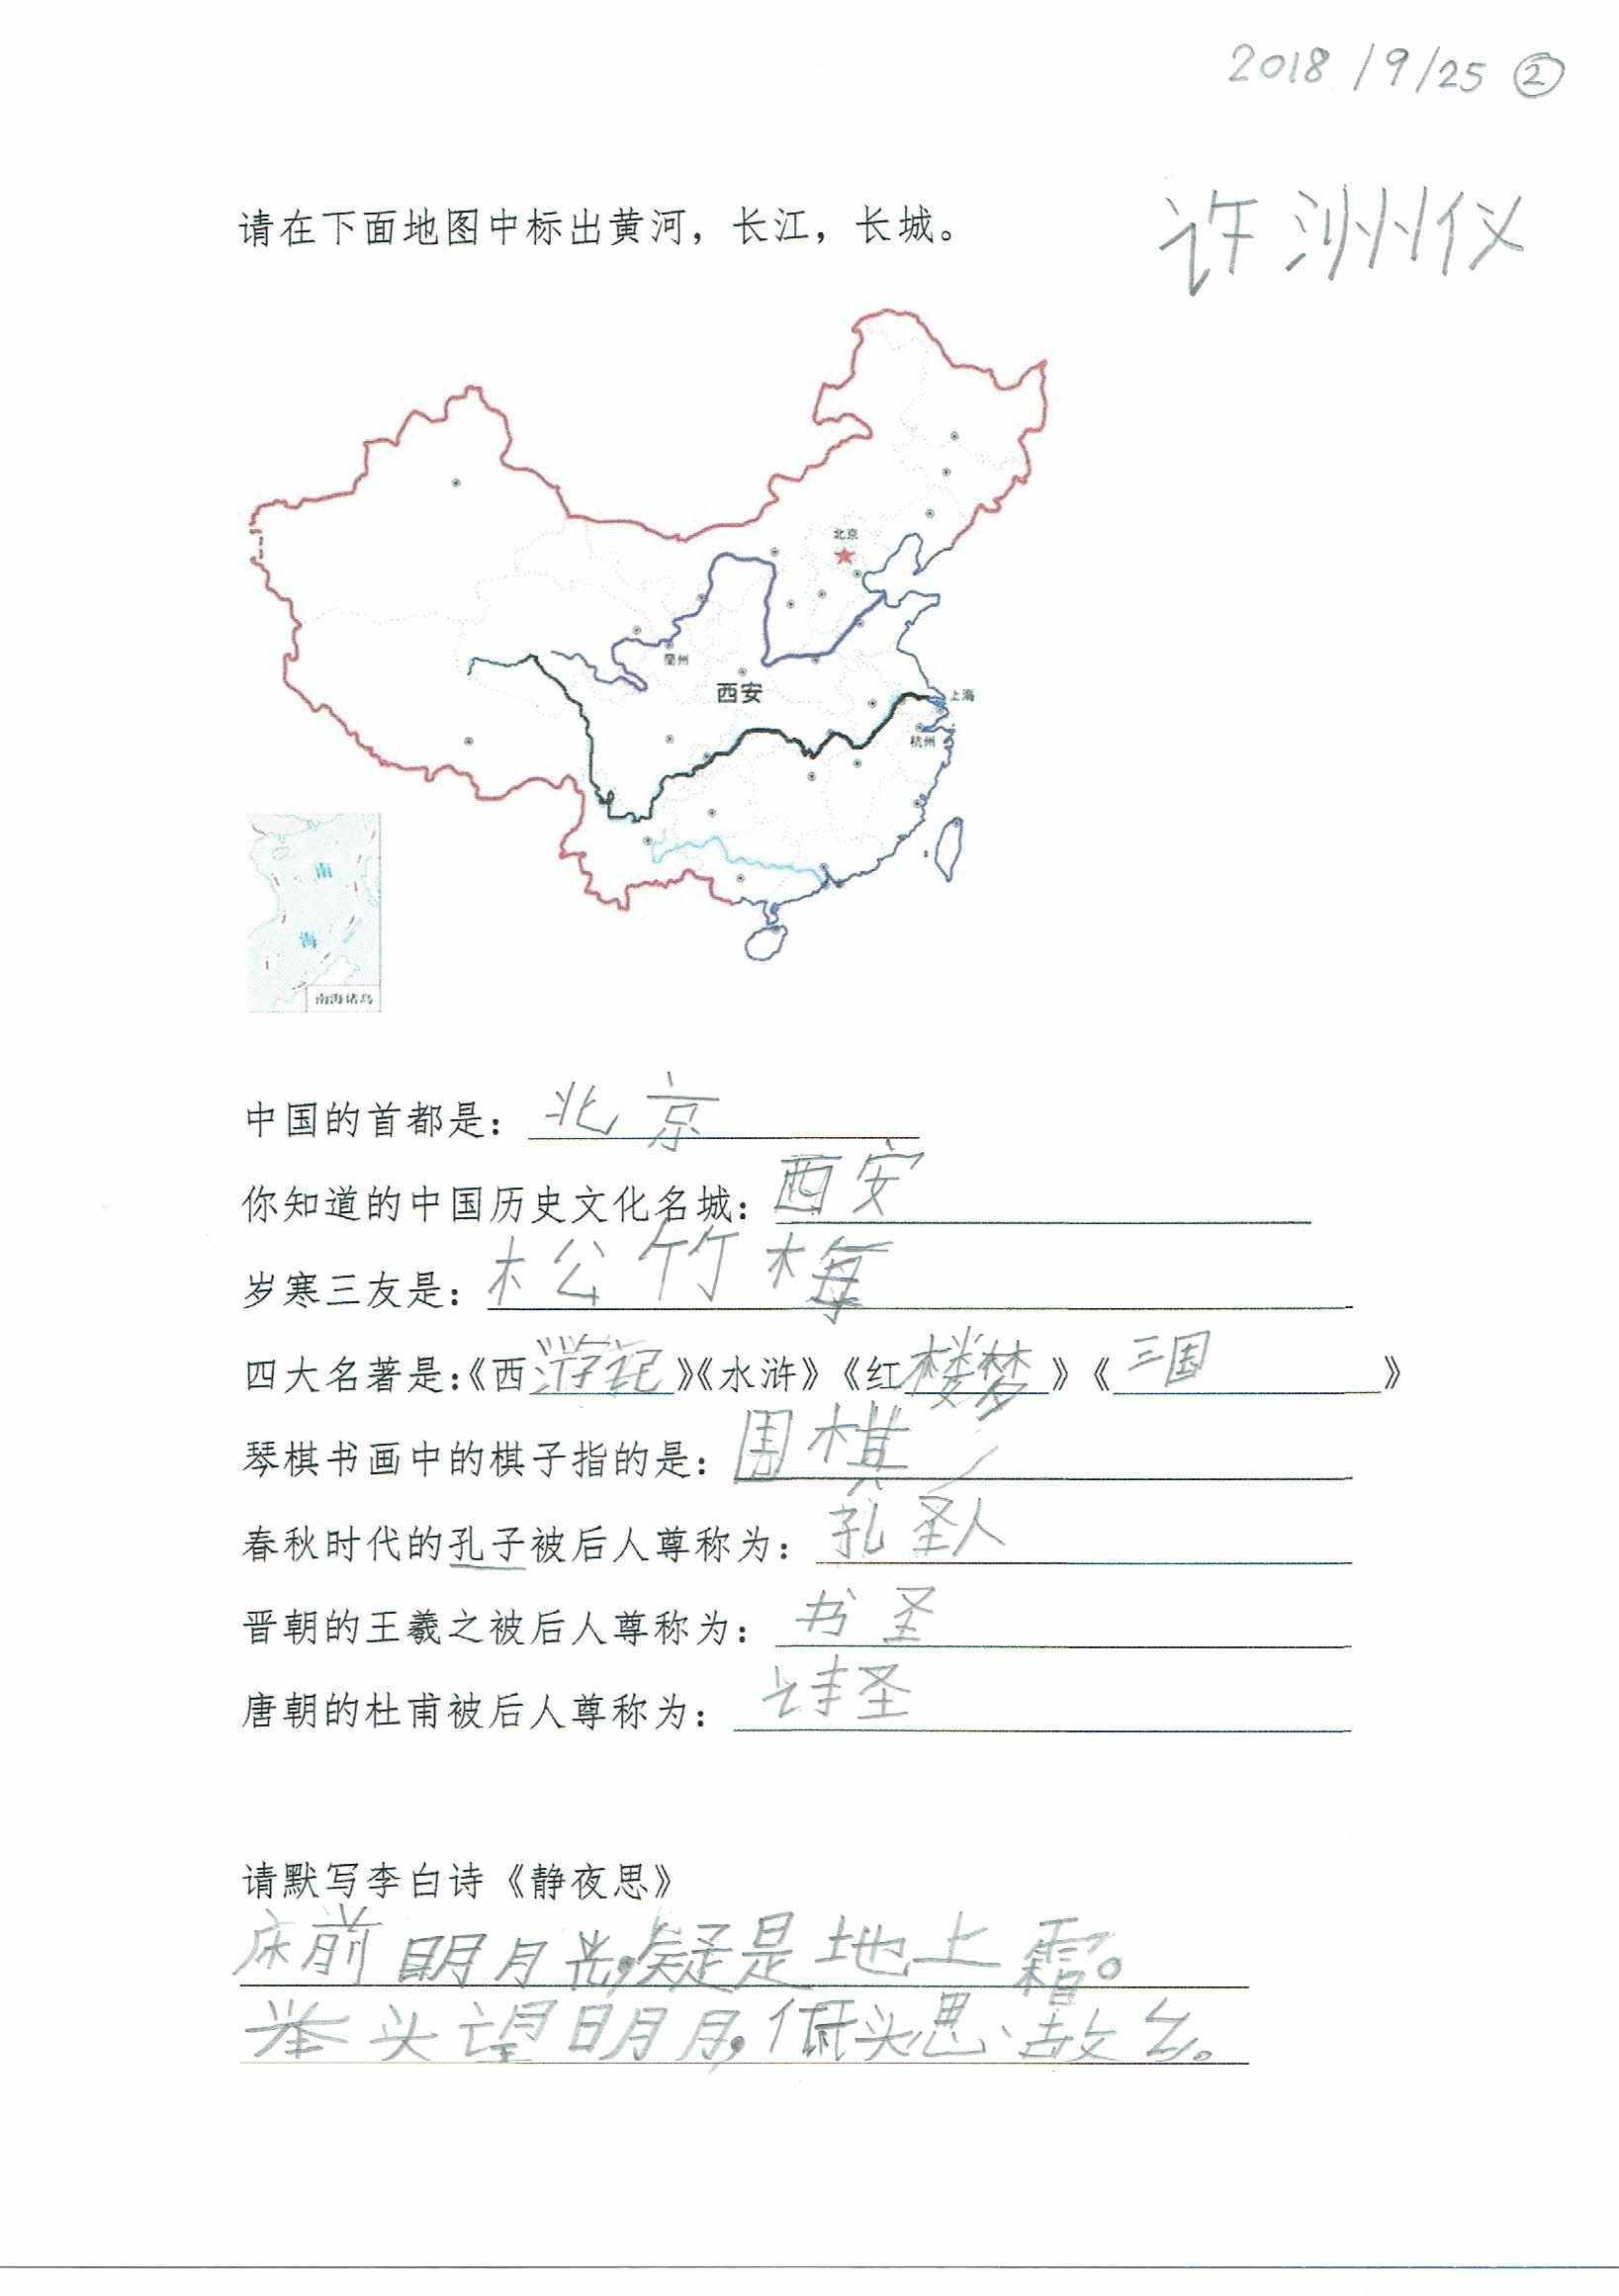 2018/9/25 ②
许洲仪
请在下面地图中标出黄河，长江，长城。
北京
蘭州
西安
上海
杭州
南
海
南海诸岛
中国的首都是：北京
你知道的中国历史文化名城：西安
岁寒三友是：松竹梅
四大名著是：《西游记》《水浒》《红楼梦》《三国》
琴棋书画中的棋子指的是：围棋
春秋时代的孔子被后人尊称为：孔圣人
晋朝的王羲之被后人尊称为：书圣
唐朝的杜甫被后人尊称为：诗圣
请默写李白诗《静夜思》
床前明月光，疑是地上霜。
举头望明月，低头思故乡。